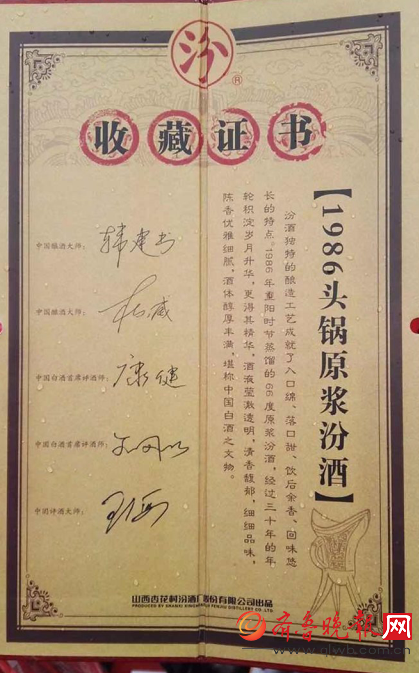 汾
®
收藏证书
【1986头锅原浆汾酒】
汾酒独特的酿造工艺成就了入口绵、落口甜、饮后余香、回味悠
长的特点。1986年重阳时节蒸馏的66度原浆汾酒,经过三十年的年
轮积淀岁月升华,更得其精华,酒液莹澈透明,清香馥郁,细细品味,
陈香优雅细腻,酒体醇厚丰满,堪称中国白酒之文物。
中国酿酒大师: 韩建书
中国酿酒大师:
中国白酒首席评酒师: 康健
中国白酒首席评酒师:
中国评酒大师:
山西杏花村汾酒厂股份有限公司出品
PRODUCED BY SHANXI XINGHUACUN FENJIU DISTILLERY CO.,LTD
齐鲁晚报网
www.qlwb.com.cn